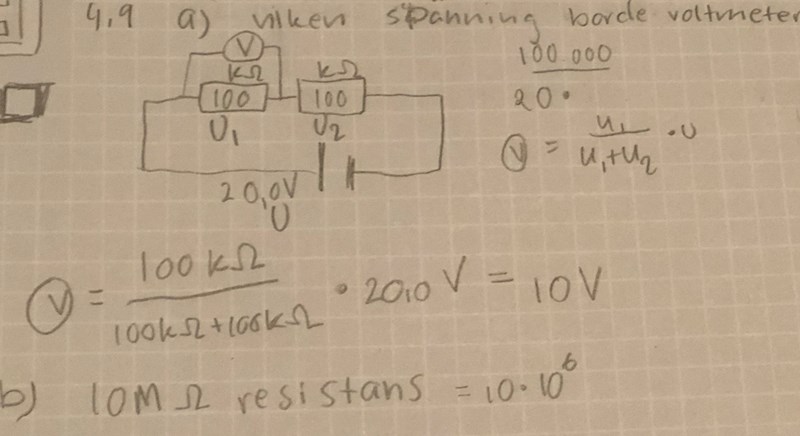 4,9 a) vilken spänning borde voltmeter
V
kΩ kΩ
100 100
U₁ U₂
20,0V
U
100 000
20 •
V = U₁ / U₁+U₂ · U
V = 100 kΩ / 100kΩ+100kΩ · 20,0 V = 10V
b) 10 M Ω resistans = 10·10⁶